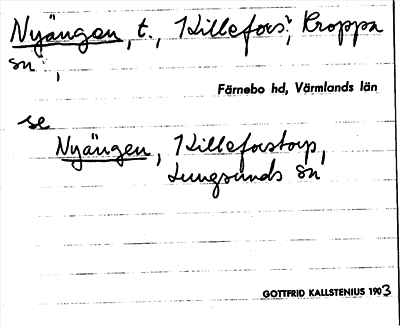 Nyängen, t., Killefors; Kroppa
sn,
Färnebo hd, Värmlands län
se
Nyängen, Killeforstorp,
Lungsunds sn
GOTTFRID KALLSTENIUS 1903